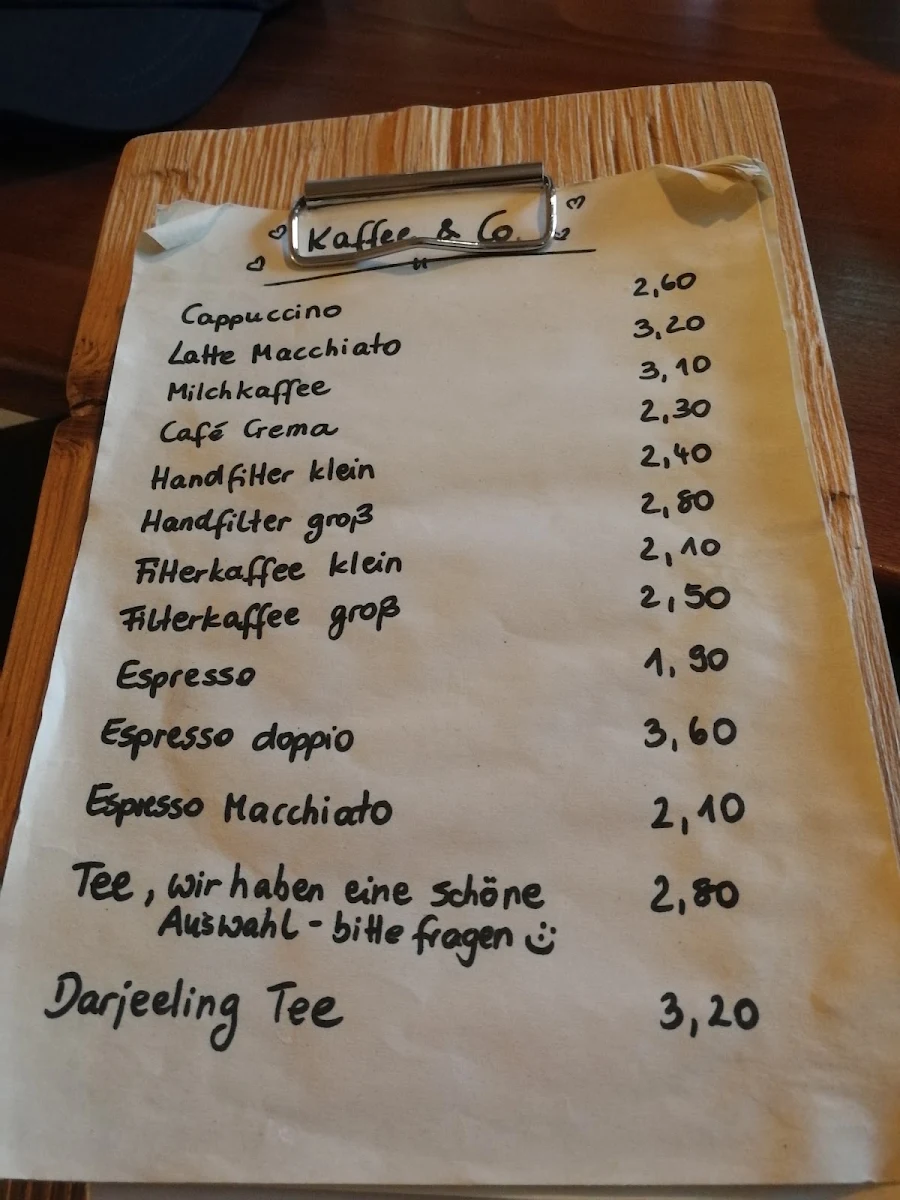 Kaffee & Co.
Cappuccino 2,60
Latte Macchiato 3,20
Milchkaffee 3,10
Café Crema 2,30
Handfilter klein 2,40
Handfilter groß 2,80
Filterkaffee klein 2,10
Filterkaffee groß 2,50
Espresso 1,90
Espresso doppio 3,60
Espresso Macchiato 2,10
Tee, wir haben eine schöne 2,80
Auswahl - bitte fragen ☺
Darjeeling Tee 3,20